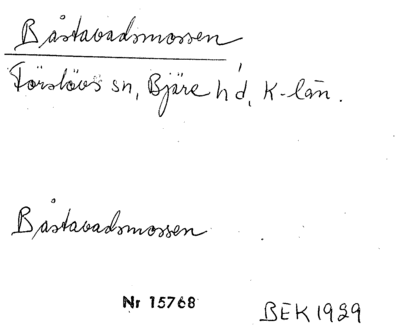 Båstavadsmossen
Förslövs sn, Bjäre hd, K-län.
Båstavadsmossen
Nr 15768
BEK 1929